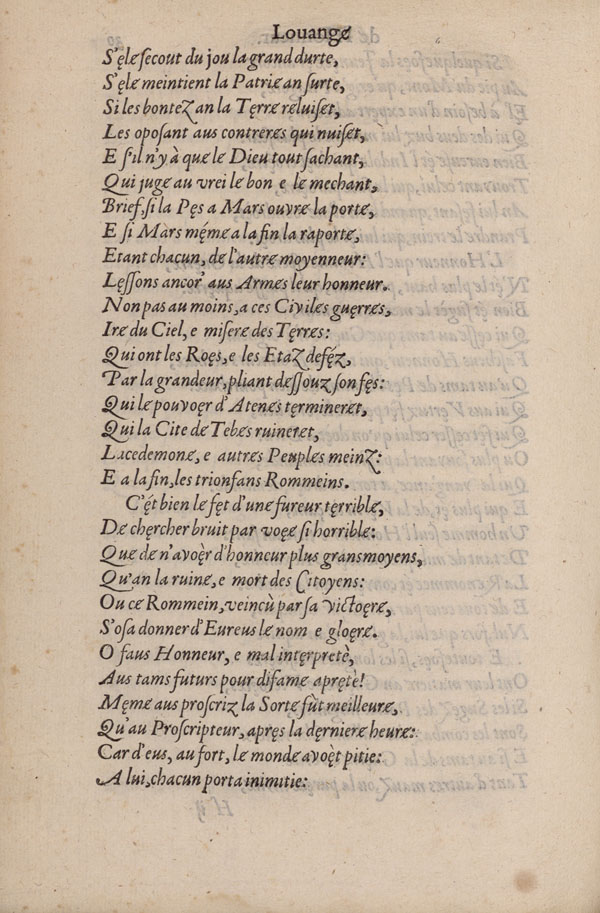 Louangȩ
S'ęlȩ secout du jou la grand durtȩ,
S'ęlȩ meintient la Patriȩ an surtȩ,
Si les bontez an la Tęrrȩ rȩluisȩt,
Les oposant aus contrerȩs qui nuisȩt,
E s'il n'y à quȩ lȩ Dieu tout sachant,
Qui jugȩ au vrei lȩ bon e lȩ mechant,
Brief, si la Pęs a Mars ouvrȩ la portȩ,
E si Mars mémȩ a la fin la raportȩ,
Etant chacun, dȩ l'autrȩ moyenneur:
Lęssons ancor' aus Armȩs leur honneur.
Non pas au moins, a ces Civilȩs guęrrȩs,
Irȩ du Ciel, e miserȩ des Tęrrȩs:
Qui ont les Roęs, e les Etaz defęz,
Par la grandeur, pliant dȩssouz son fęs:
Qui lȩ pouvoęr d'Atenȩs tęrminerȩt,
Qui la Cite dȩ Tebȩs ruinerȩt,
Lacedemonȩ, e autrȩs Peuplȩs meinz:
E a la fin, les trionfans Rommeins.
C'ét bien lȩ fęt d'unȩ fureur tęrriblȩ,
Dȩ chęrcher bruit par voęȩ si horriblȩ:
Quȩ dȩ n'avoęr d'honneur plus grans moyens,
Qu'an la ruinȩ, e mort des Citoyens:
Ou cȩ Rommein, veincù par sa victoęrȩ,
S'osa donner d'Eureus lȩ nom e gloęrȩ.
O faus Honneur, e mal intęrpretè,
Aus tams futurs pour difamȩ apręte!
Męmȩ aus proscriz la Sortȩ fùt meilleurȩ,
Qu'au Proscripteur, apręs la dęrnierȩ heurȩ:
Car d'eus, au fort, lȩ mondȩ avoę̀t pitie:
A lui, chacun porta inimitie: